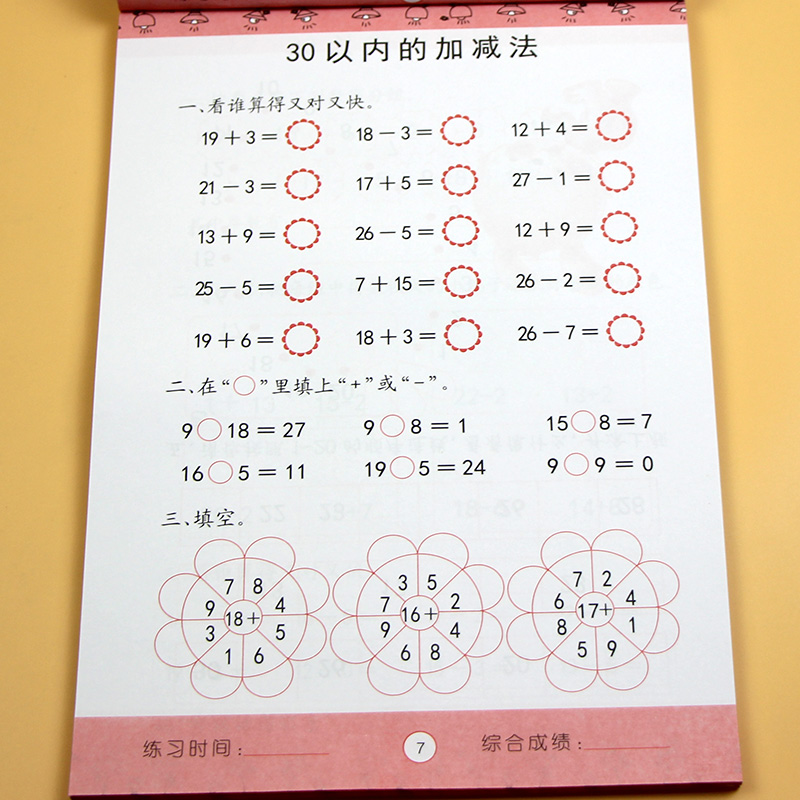 30以内的加减法
一、看谁算得又对又快。
19+3= 18-3= 12+4=
21-3= 17+5= 27-1=
13+9= 26-5= 12+9=
25-5= 7+15= 26-2=
19+6= 18+3= 26-7=
二、在“○”里填上“+”或“-”。
9○18=27 9○8=1 15○8=7
16○5=11 19○5=24 9○9=0
三、填空。
7 8 3 5 7 2
9 4 7 2 6 4
18+ 16+ 17+
3 5 9 4 8 1
1 6 6 8 5 9
练习时间:______ 7 综合成绩:______